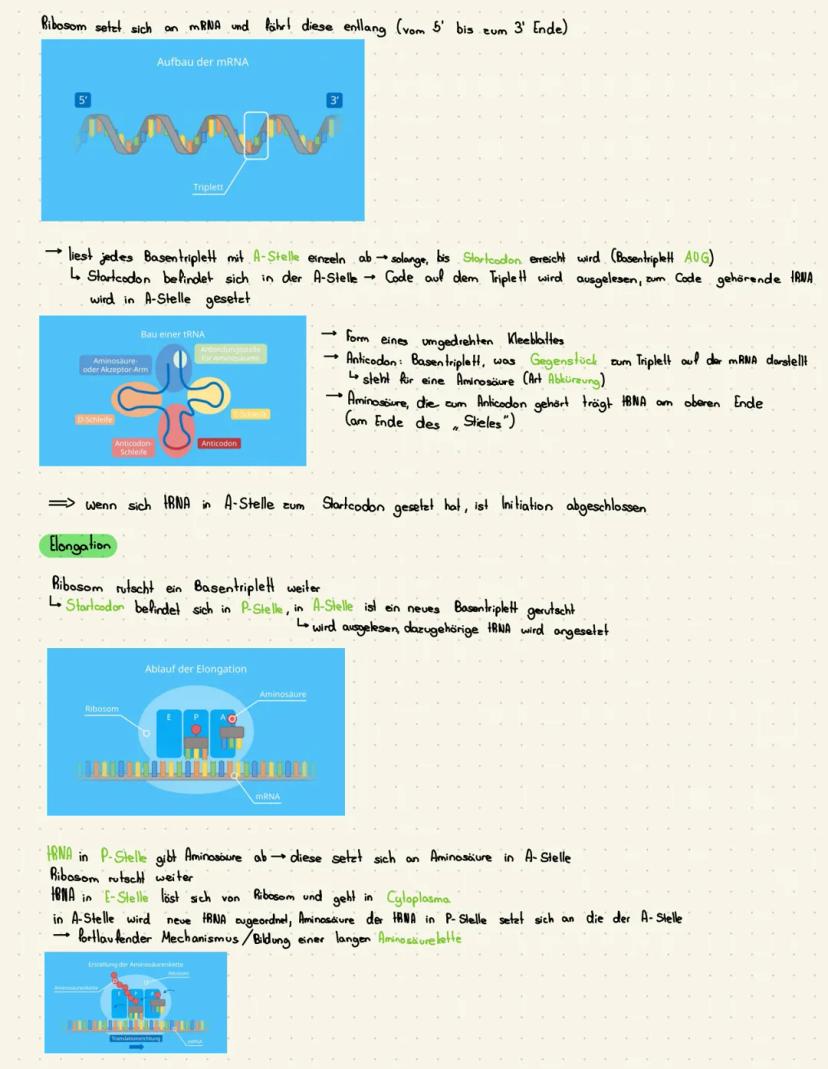 Ribosom setzt sich an mRNA und fährt diese entlang (vom 5' bis zum 3' Ende)
Aufbau der mRNA
5'
3'
Triplett
→ liest jedes Basentriplett mit A-Stelle einzeln ab → solange, bis Startcodon erreicht wird (Basentriplett AUG)
↳ Startcodon befindet sich in der A-Stelle → Code auf dem Triplett wird ausgelesen, zum Code gehörende tRNA
wird in A-Stelle gesetzt
Bau einer tRNA
Aminosäure-
oder Akzeptor-Arm
Anbindungsstelle
für Aminosäure
D-Schleife
T-Schleife
Anticodon-
Schleife
Anticodon
→ Form eines umgedrehten Kleeblattes
→ Anticodon: Basentriplett, was Gegenstück zum Triplett auf der mRNA darstellt
↳ steht für eine Aminosäure (Art Abkürzung)
→ Aminosäure, die zum Anticodon gehört trägt tRNA am oberen Ende
(am Ende des „Stieles")
⟹ wenn sich tRNA in A-Stelle zum Startcodon gesetzt hat, ist Initiation abgeschlossen
Elongation
Ribosom rutscht ein Basentriplett weiter
↳ Startcodon befindet sich in P-Stelle, in A-Stelle ist ein neues Basentriplett gerutscht
↳ wird ausgelesen, dazugehörige tRNA wird angesetzt
Ablauf der Elongation
Ribosom
Aminosäure
E P A
mRNA
tRNA in P-Stelle gibt Aminosäure ab → diese setzt sich an Aminosäure in A-Stelle
Ribosom rutscht weiter
tRNA in E-Stelle löst sich von Ribosom und geht in Cytoplasma
in A-Stelle wird neue tRNA zugeordnet, Aminosäure der tRNA in P-Stelle setzt sich an die der A-Stelle
→ fortlaufender Mechanismus/Bildung einer langen Aminosäurekette
Erstellung der Aminosäurenkette
Aminosäurenkette
Ribosom
E P A
Translationsrichtung
mRNA